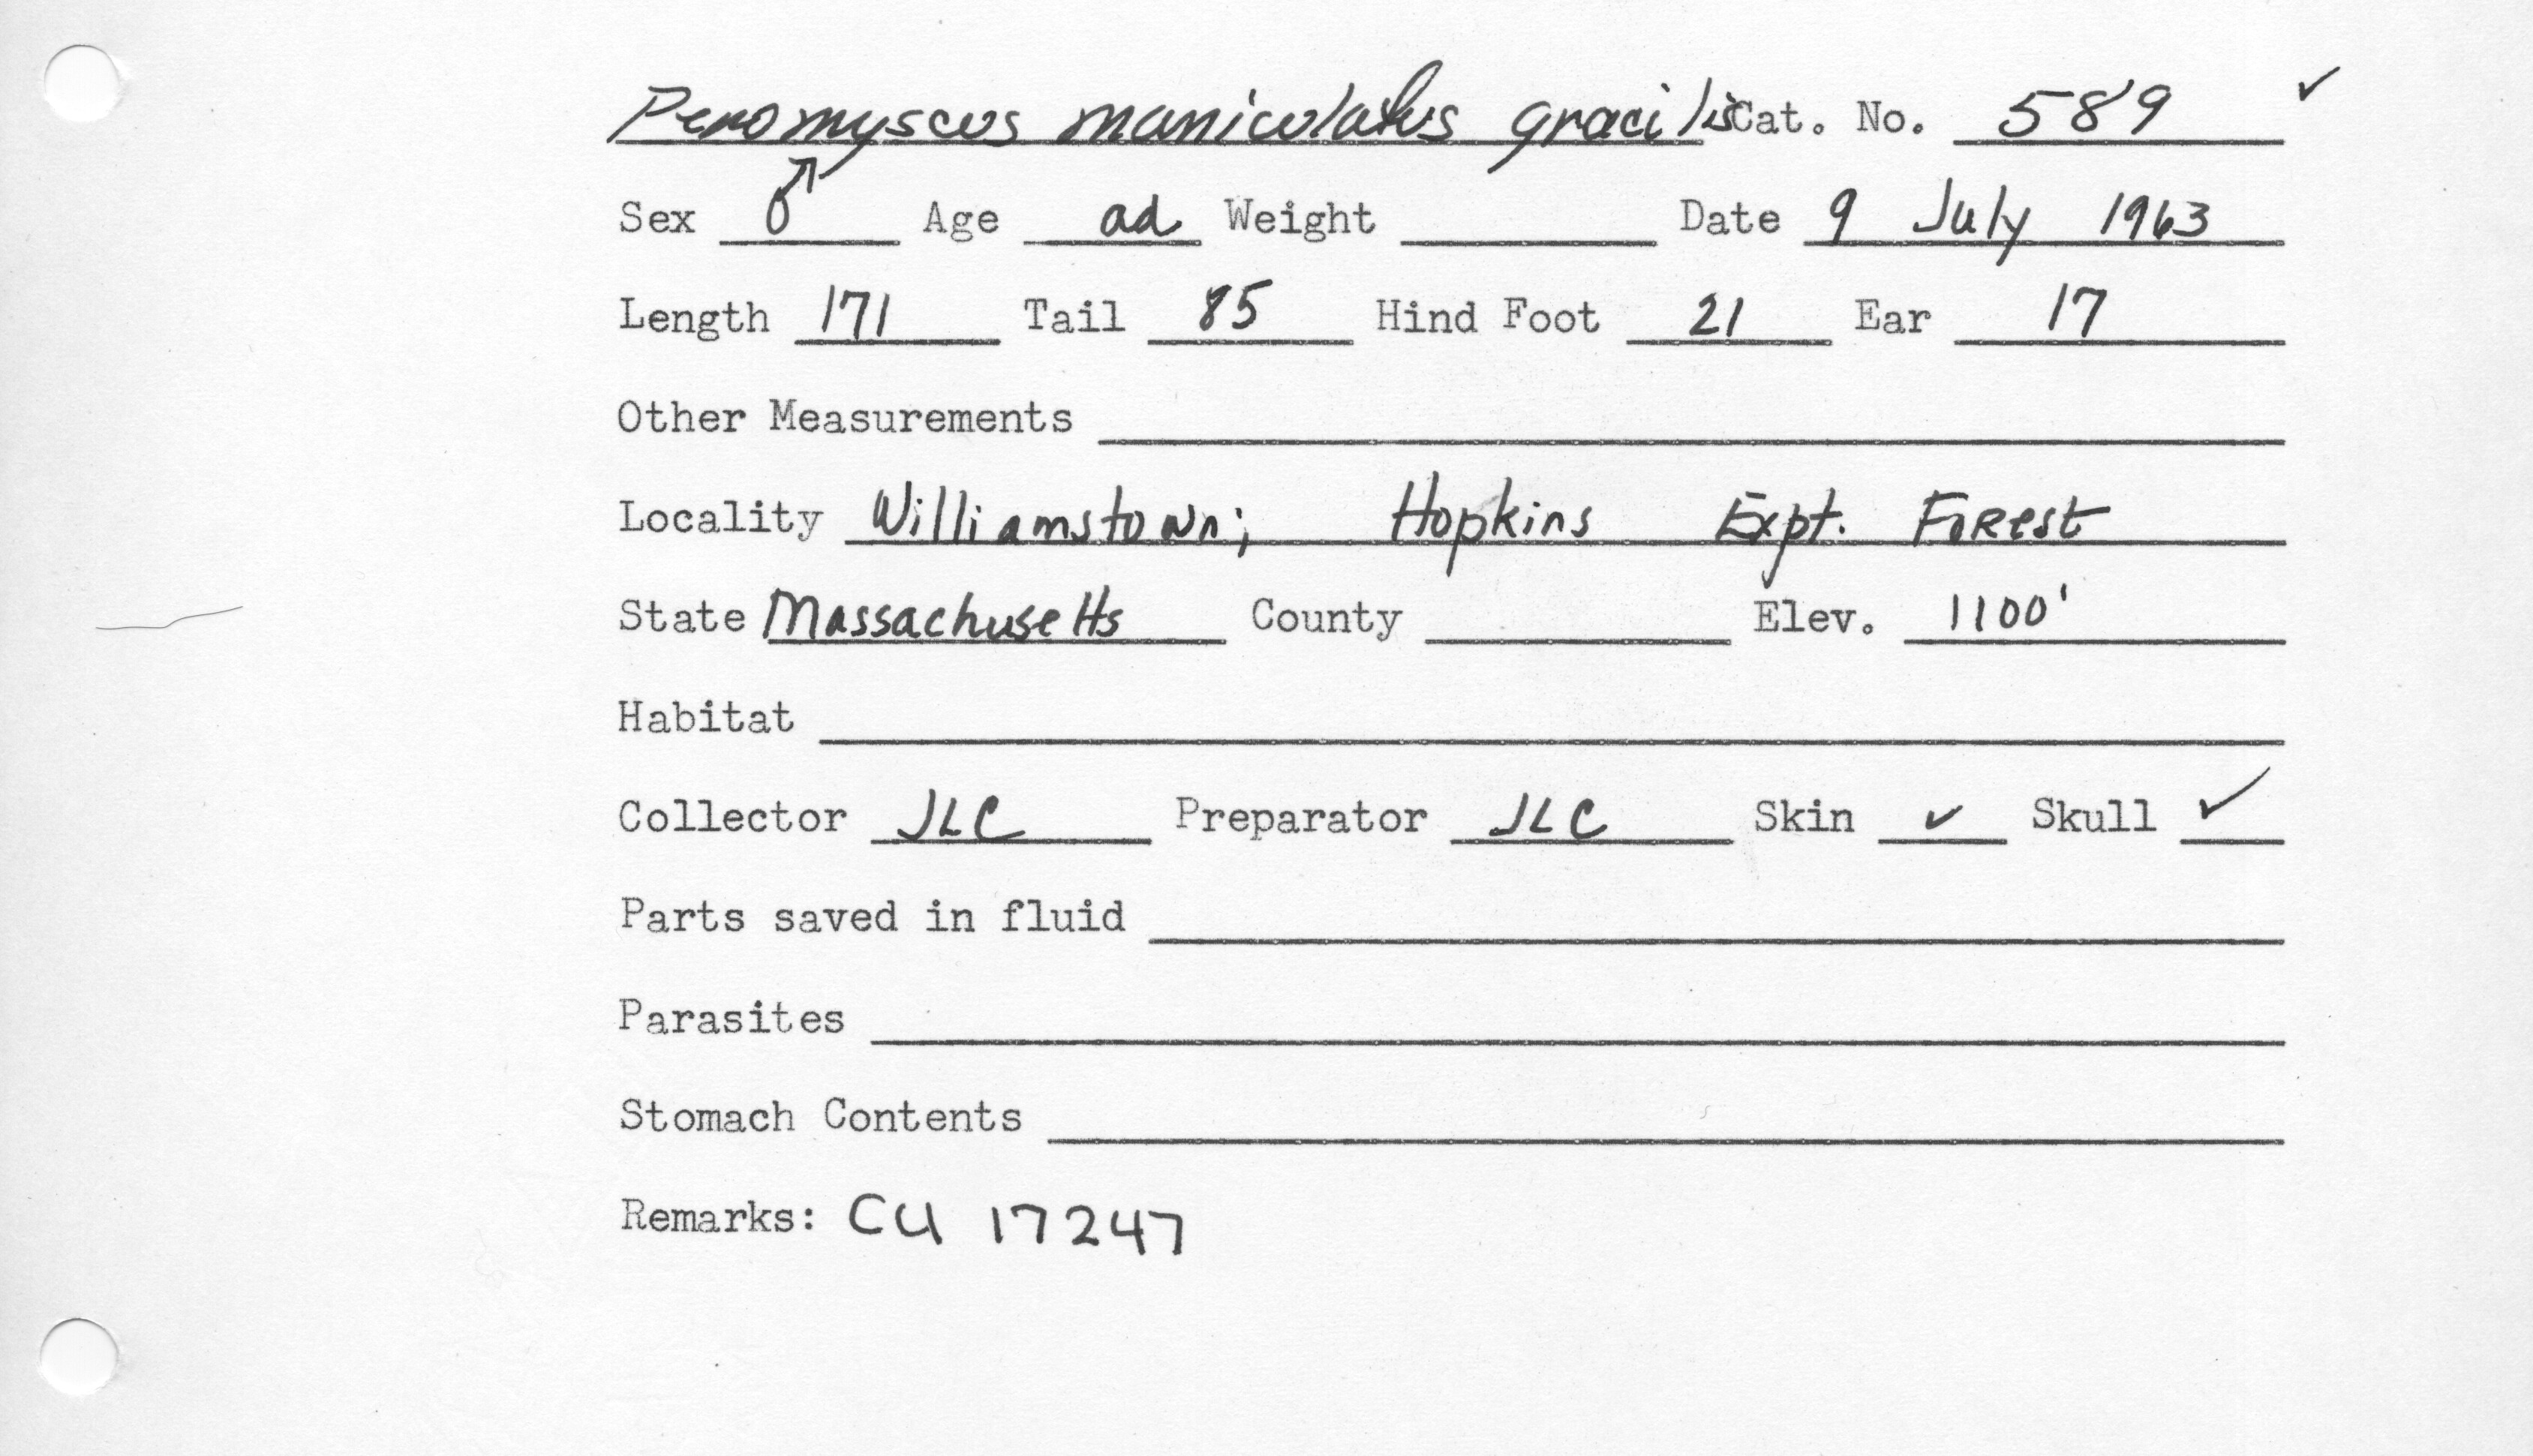 Peromyscus maniculatus gracilis Cat. No. 589 ✓
Sex ♂ Age ad Weight Date 9 July 1963
Length 171 Tail 85 Hind Foot 21 Ear 17
Other Measurements
Locality Williamstown; Hopkins Expt. Forest
State Massachusetts County Elev. 1100'
Habitat
Collector JLC Preparator JLC Skin ✓ Skull ✓
Parts saved in fluid
Parasites
Stomach Contents
Remarks: CU 17247